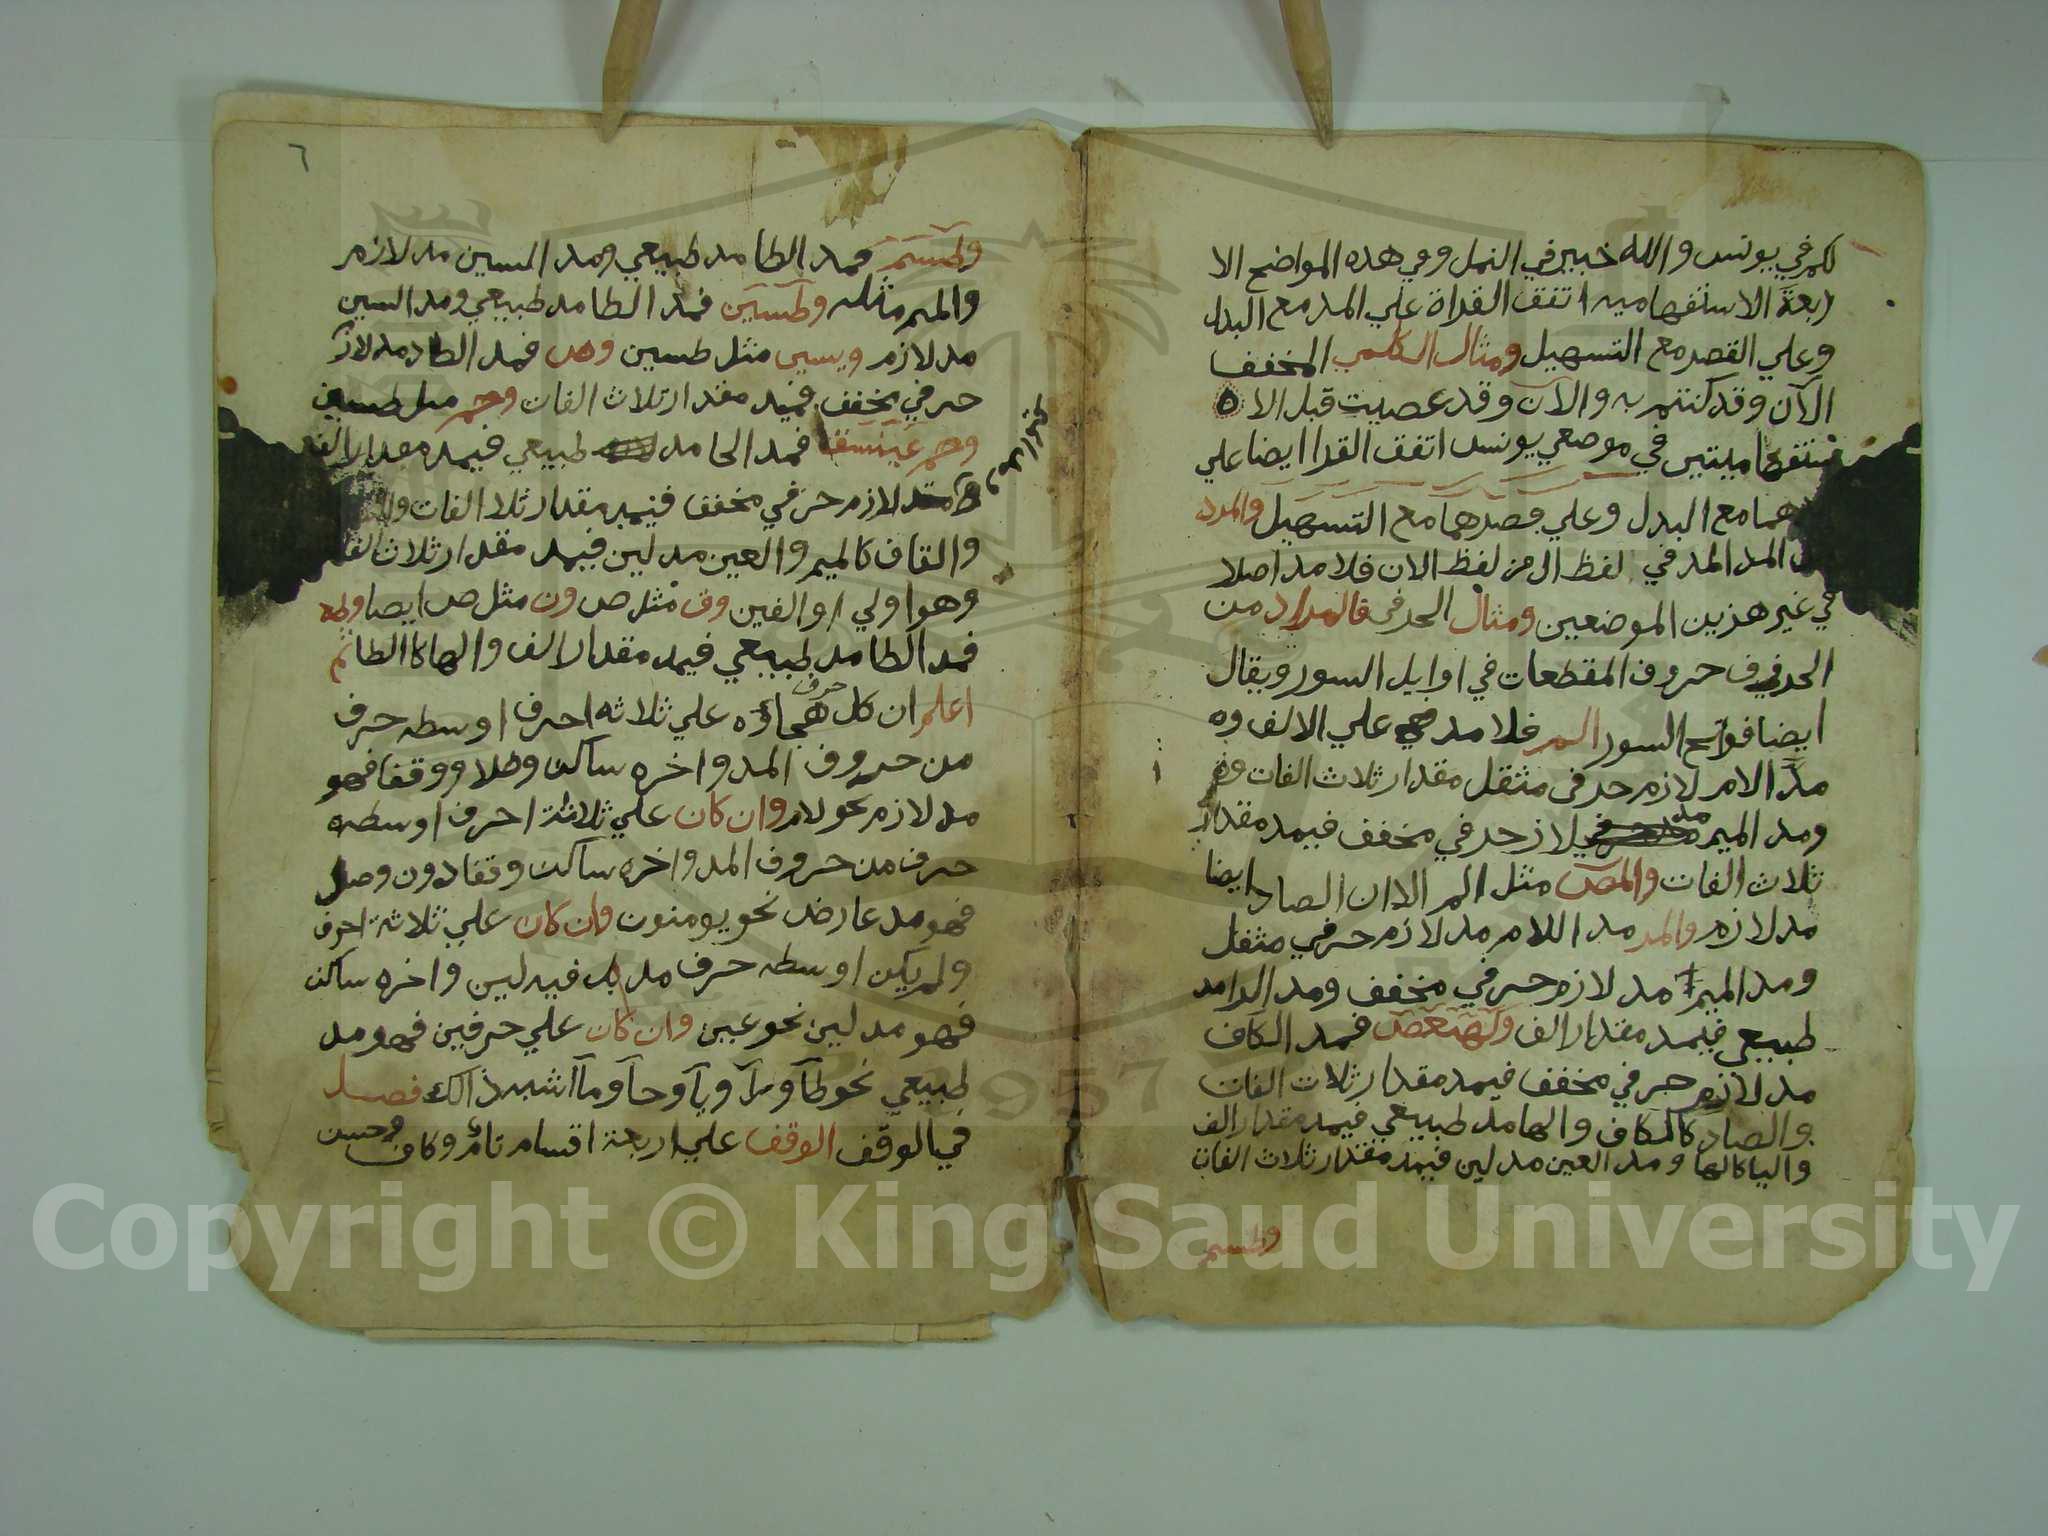 لكم في يونس والله خير في النمل وفي هذه المواضع الا
ربعة الاستفهاميه اتفق القراة علي المد مع البدل
وعلي القصر مع التسهيل ومثال الكلمي المخفف
الآن وقد كنتم به والآن وقد عصيت قبل الاه
ستفهاميتين في موضعي يونس اتفق القرا ايضا علي
هما مع البدل وعلي قصرهما مع التسهيل والمراد
المد المد في لفظ ال من لفظ الان فلا مد اصلا
في غير هذين الموضعين ومثال الحرفي فالمراد من
الحرفي حروف المقطعات في اوايل السور ويقال
ايضا فواتح السور الم فلا مد علي الالف وه
مد الام لازم حرفي مثقل مقدار ثلاث الفات
ومد الميم مد لازم حرفي مخفف فيمد مقدار
ثلاث الفات والمص مثل الم الا ان الصاد ايضا
مد لازم والمر مد اللام مد لازم حرفي مثقل
ومد الميم مد لازم حرفي مخفف ومد الرا مد
طبيعي فيمد مقدار الف وكهيعص فمد الكاف
مد لازم حرفي مخفف فيمد مقدار ثلاث الفات
والصاد كالكاف والها مد طبيعي فيمد مقدار الف
واليا كالها ومد العين مد لين فيمد مقدار ثلاث الفات
وطسم
٦
وطسم فمد الطا مد طبيعي ومد السين مد لازم
والميم مثله وطسين فمد الطا مد طبيعي ومد السين
مد لازم ويسين مثل طسين وص فمد الصاد مد لازم
حرفي مخفف فيمد مقدار ثلاث الفات وحم مثل طسين
وحم عسق فمد الحا مد طبيعي فيمد مقدار الف
لازم حرفي مخفف فيمد مقدار ثلاث الفات
والقاف كالميم والعين مد لين فيمد مقدار ثلاث الفات
وهو اولي او الفين وق مثل ص ون مثل ص ايضا وطه
فمد الطا مد طبيعي فيمد مقدار الف والها كالطا ثم
اعلم ان كل حرف هجاؤه علي ثلاثه احرف اوسطه حرف
من حروف المد واخره ساكن وصلا ووقفا فهو
مد لازم نحو لام وان كان علي ثلاثة احرف اوسطه
حرف من حروف المد واخره ساكن وقفا دون وصل
فهو مد عارض نحو يومنون وان كان علي ثلاثة احرف
ولم يكن اوسطه حرف مد بل فيه لين واخره ساكن
فهو مد لين نحو عين وان كان علي حرفين فهو مد
طبيعي نحو طآ ورآ ويآ وحآ وما اشبه ذالك فصل
في الوقف الوقف علي اربعة اقسام تام وكاف وحسن
Copyright © King Saud University
1957